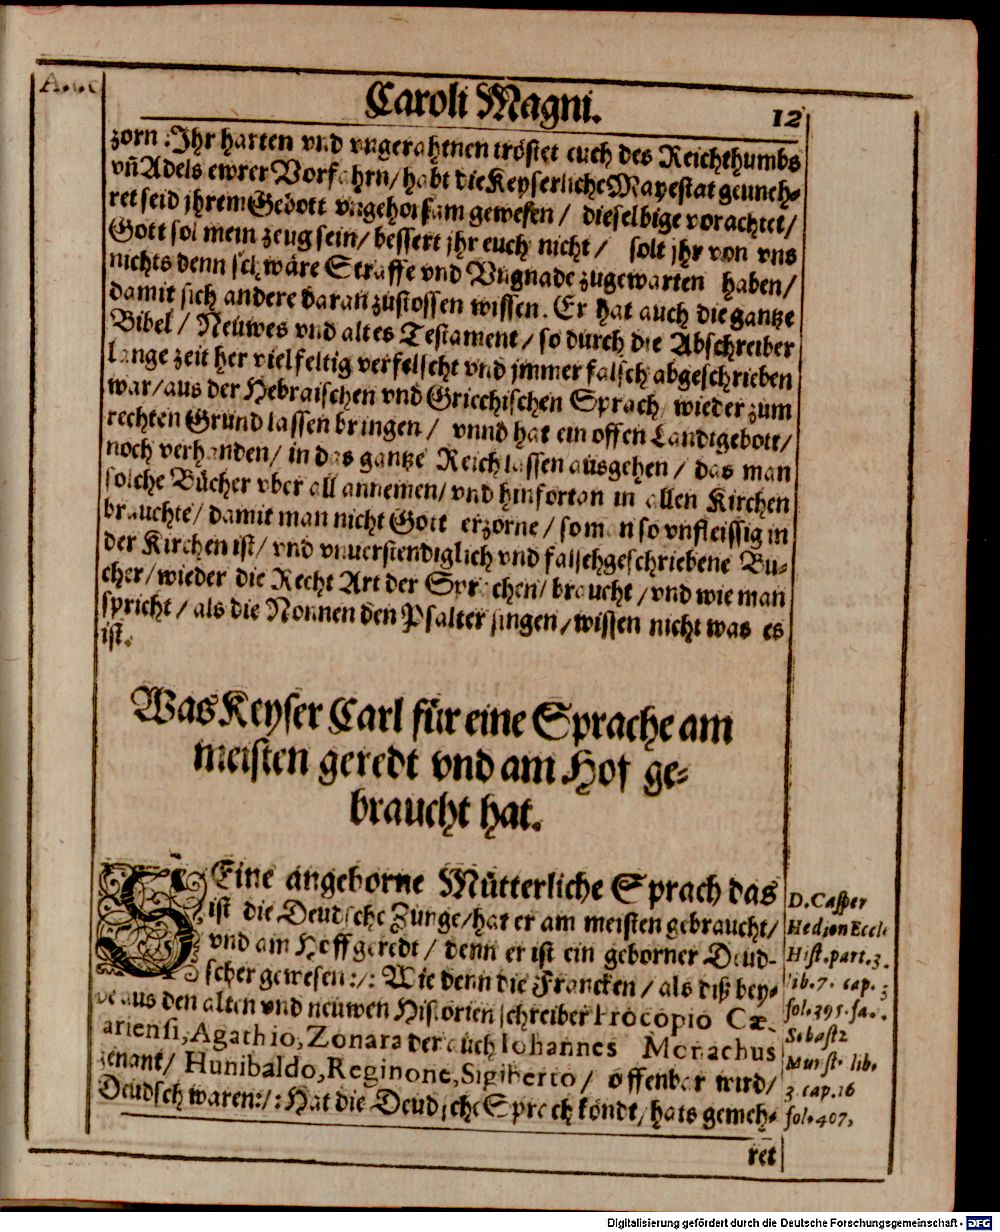 Caroli Magni.
12
zorn: Ihr harten vnd vngerahtnen tröstet euch des Reichthumbs
vñ Adels ewrer Vorfahrn/ habt die Keyserliche Mayestat geuneh-
ret seid jhrem Gebott vngehorsam gewesen/ dieselbige vorachtet/
Gott sol mein zeug sein/ bessert jhr euch nicht/ solt jhr von vns
nichts denn schwäre Straffe vnd Vngnade zugewarten haben/
damit sich andere daran zustossen wissen. Er hat auch die gantze
Bibel/ Neuwes vnd altes Testament/ so durch die Abschreiber
lange zeit her vielfeltig verfelscht vnd jmmer falsch abgeschrieben
war/ aus der Hebraischen vnd Griechischen Sprach/ wieder zum
rechten Grund lassen bringen/ vnnd hat ein offen Landtgebott/
noch verhanden/ in das gantze Reich lassen ausgehen/ das man
solche Bücher vber all annemen/ vnd hinfortan in allen Kirchen
brauchte/ damit man nicht Gott erzorne/ so man so vnfleissig in
der Kirchen ist/ vnd vnuerstendiglich vnd falschgeschriebene Bü-
cher/ wieder die Recht Art der Sprachen/ braucht/ vnd wie man
spricht/ als die Nonnen den Psalter singen/ wissen nicht was es
ist.
Was Keyser Carl für eine Sprache am
meisten geredt vnd am Hof ge-
braucht hat.
SEine angeborne Mütterliche Sprach das
ist die Deudsche Zunge/ hat er am meisten gebraucht/
vnd am Hoff geredt/ denn er ist ein geborner Deud-
scher gewesen:/: Wie denn die Francken/ als diß bey-
de aus den alten vnd neuwen Historien schreiber Procopio Cæ-
ariensi, Agathio, Zonara der auch Iohannes Monachus
genant/ Hunibaldo, Reginone, Sigiberto/ offenbar wird/
Deudsch waren:/: Hat die Deudsche Sprach köndt/ hats gemeh-
ret
D. Casper
Hedion Eccle
Hist. part. 3.
lib. 7. cap. 3
fol. 395. fa..
Sebast2
Munst. lib.
3 cap. 16
fol. 407,
Digitalisierung gefördert durch die Deutsche Forschungsgemeinschaft - DFG